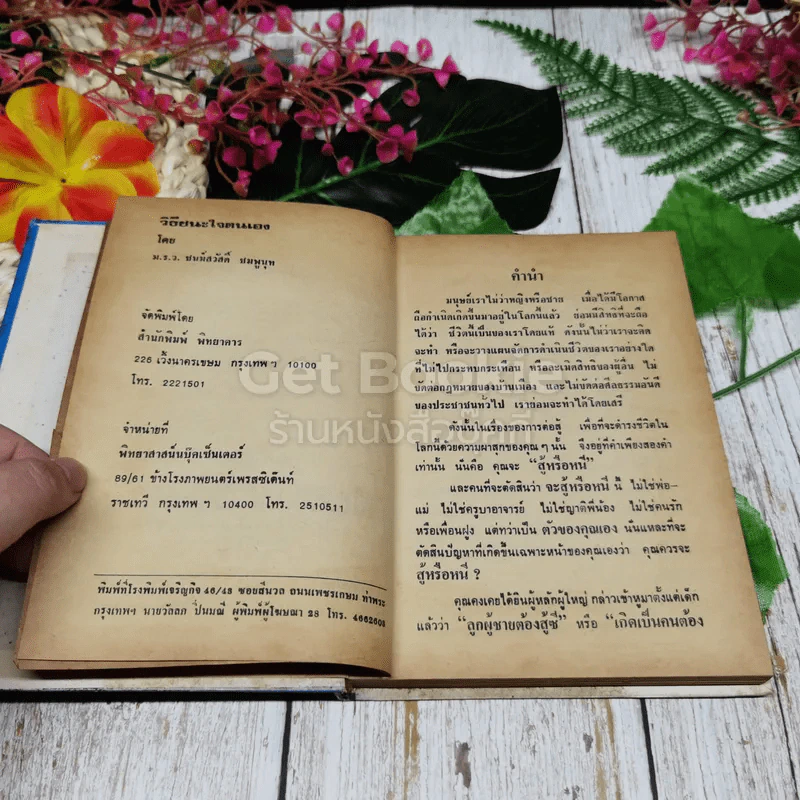 วิธีชนะใจตนเอง
โดย
ม.ร.ว. ชนม์สวัสดิ์ ชมพูนุท
จัดพิมพ์โดย
สำนักพิมพ์ พิทยาคาร
226 เวิ้งนาครเขษม กรุงเทพฯ 10100
โทร. 2221501
จำหน่ายที่
พิทยาสาสน์นบุ๊คเซ็นเตอร์
89/61 ข้างโรงภาพยนตร์เพรสซิเด้นท์
ราชเทวี กรุงเทพฯ 10400 โทร. 2510511
พิมพ์ที่โรงพิมพ์เจริญกิจ 46/48 ซอยสีนวล ถนนเพชรเกษม ท่าพระ
กรุงเทพฯ นายวัลลภ ปิ่นมณี ผู้พิมพ์ผู้โฆษณา 28 โทร.
คำนำ
มนุษย์เราไม่ว่าหญิงหรือชาย เมื่อได้มีโอกาส
ถือกำเนิดเกิดขึ้นมาอยู่ในโลกนี้แล้ว ย่อมมีสิทธิที่จะถือ
ได้ว่า ชีวิตนี้เป็นของเราโดยแท้ ดังนั้นไม่ว่าเราจะคิด
จะทำ หรือจะวางแผนจัดการดำเนินชีวิตของเราอย่างใด
ที่ไม่ไปกระทบกระเทือน หรือละเมิดสิทธิของผู้อื่น ไม่
ขัดต่อกฎหมายของบ้านเมือง และไม่ขัดต่อศีลธรรมอันดี
ของประชาชนทั่วไป เราย่อมจะทำได้โดยเสรี
ดังนั้นในเรื่องของการต่อสู้ เพื่อที่จะดำรงชีวิตใน
โลกนี้ด้วยความผาสุกของคุณ ๆ นั้น จึงอยู่ที่คำเพียงสองคำ
เท่านั้น นั่นคือ คุณจะ “สู้หรือหนี”
และคนที่จะตัดสินว่า จะสู้หรือหนี นี้ ไม่ใช่พ่อ—
แม่ ไม่ใช่ครูบาอาจารย์ ไม่ใช่ญาติพี่น้อง ไม่ใช่คนรัก
หรือเพื่อนฝูง แต่ทว่าเป็น ตัวของคุณเอง นั่นแหละที่จะ
ตัดสินปัญหาที่เกิดขึ้นเฉพาะหน้าของคุณเองว่า คุณควรจะ
สู้หรือหนี ?
คุณคงเคยได้ยินผู้หลักผู้ใหญ่ กล่าวเข้าหูมาตั้งแต่เด็ก
แล้วว่า “ลูกผู้ชายต้องสู้ซี” หรือ “เกิดเป็นคนต้อง
ร้านหนังสือบุ๊คที่